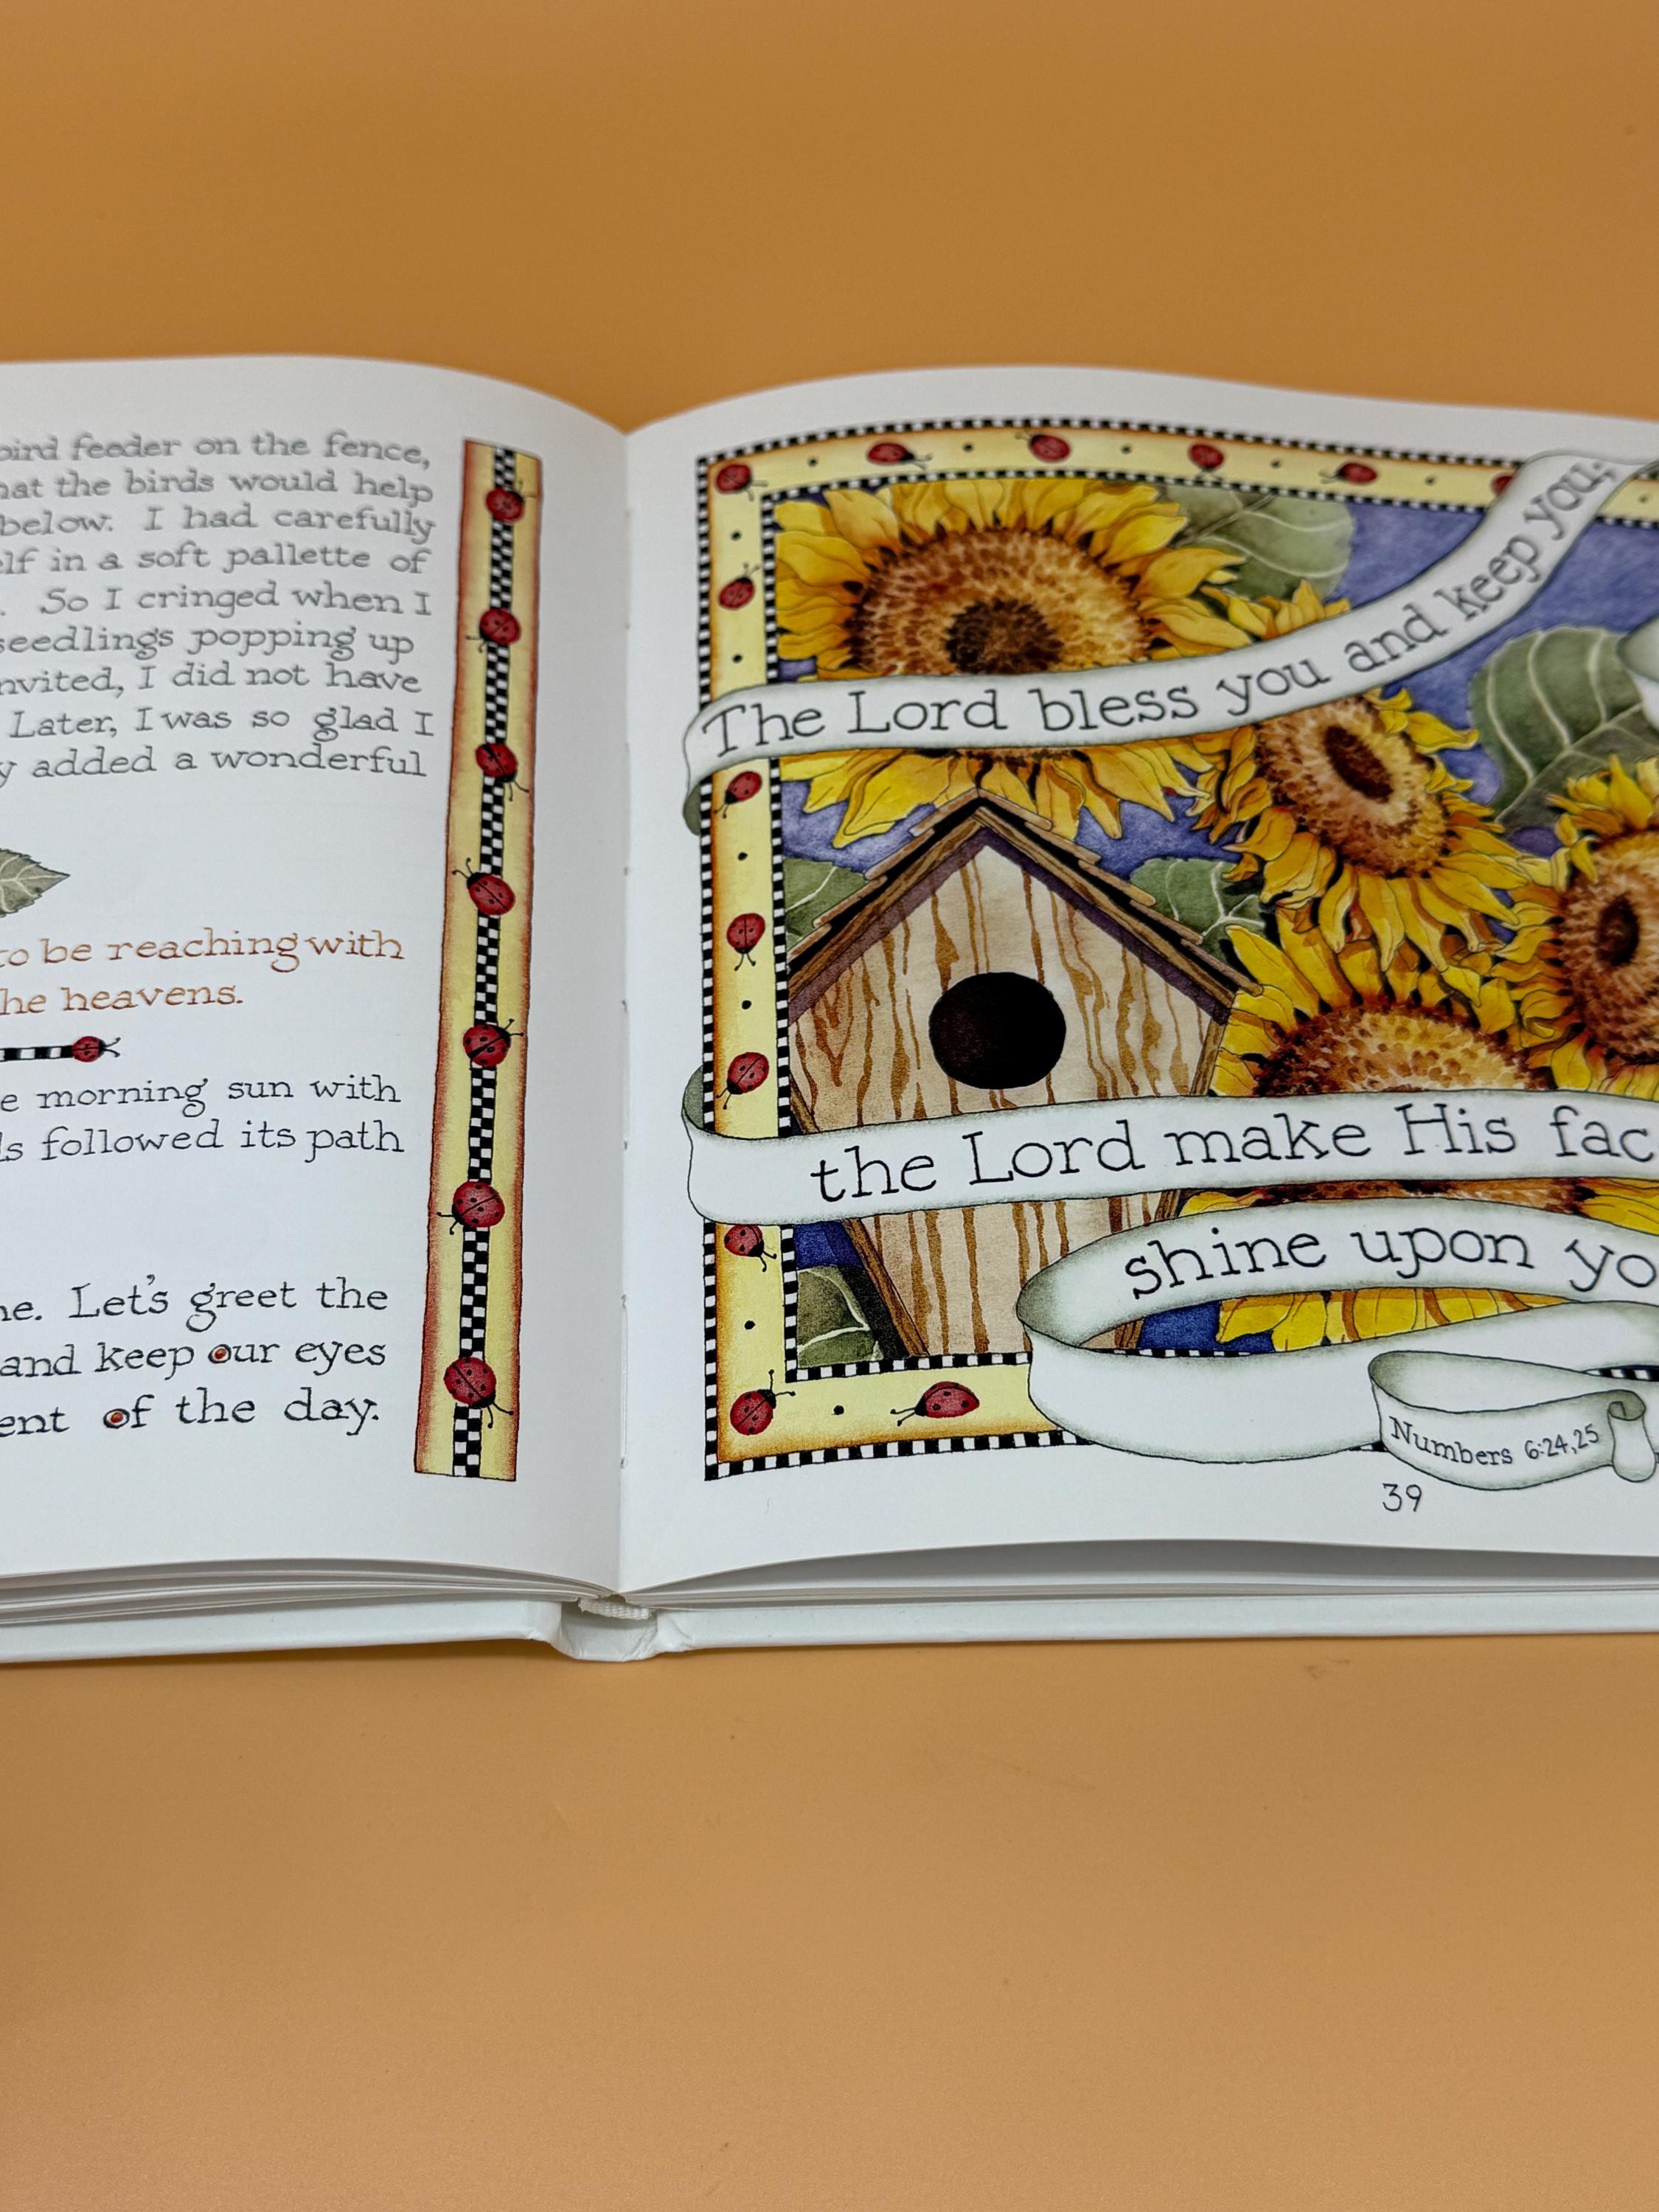 bird feeder on the fence,
that the birds would help
below. I had carefully
in a soft pallette of
. So I cringed when I
seedlings popping up
nvited, I did not have
Later, I was so glad I
y added a wonderful
to be reaching with
he heavens.
e morning sun with
ds followed its path
ne. Let's greet the
and keep our eyes
ent of the day.
The Lord bless you and keep you;
the Lord make His fac
shine upon yo
Numbers 6:24,25
39